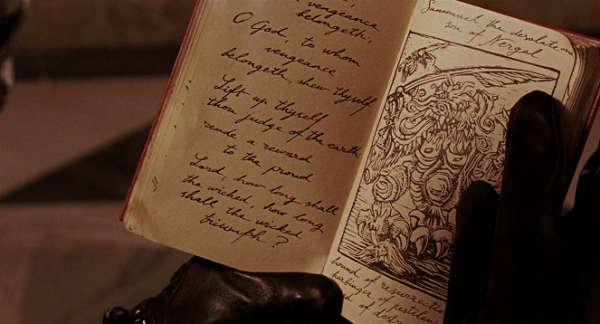 vengeance
belongeth,
O God, to whom
vengeance
belongeth, shew thyself
Lift up thyself
thou judge of the earth
rende a reward
to the proud
Lord, how long shall
the wicked, how long
shall the wicked
triumph?
Sammael the desolation
son of Nergal
hound of resurrection
harbinger of pestilence